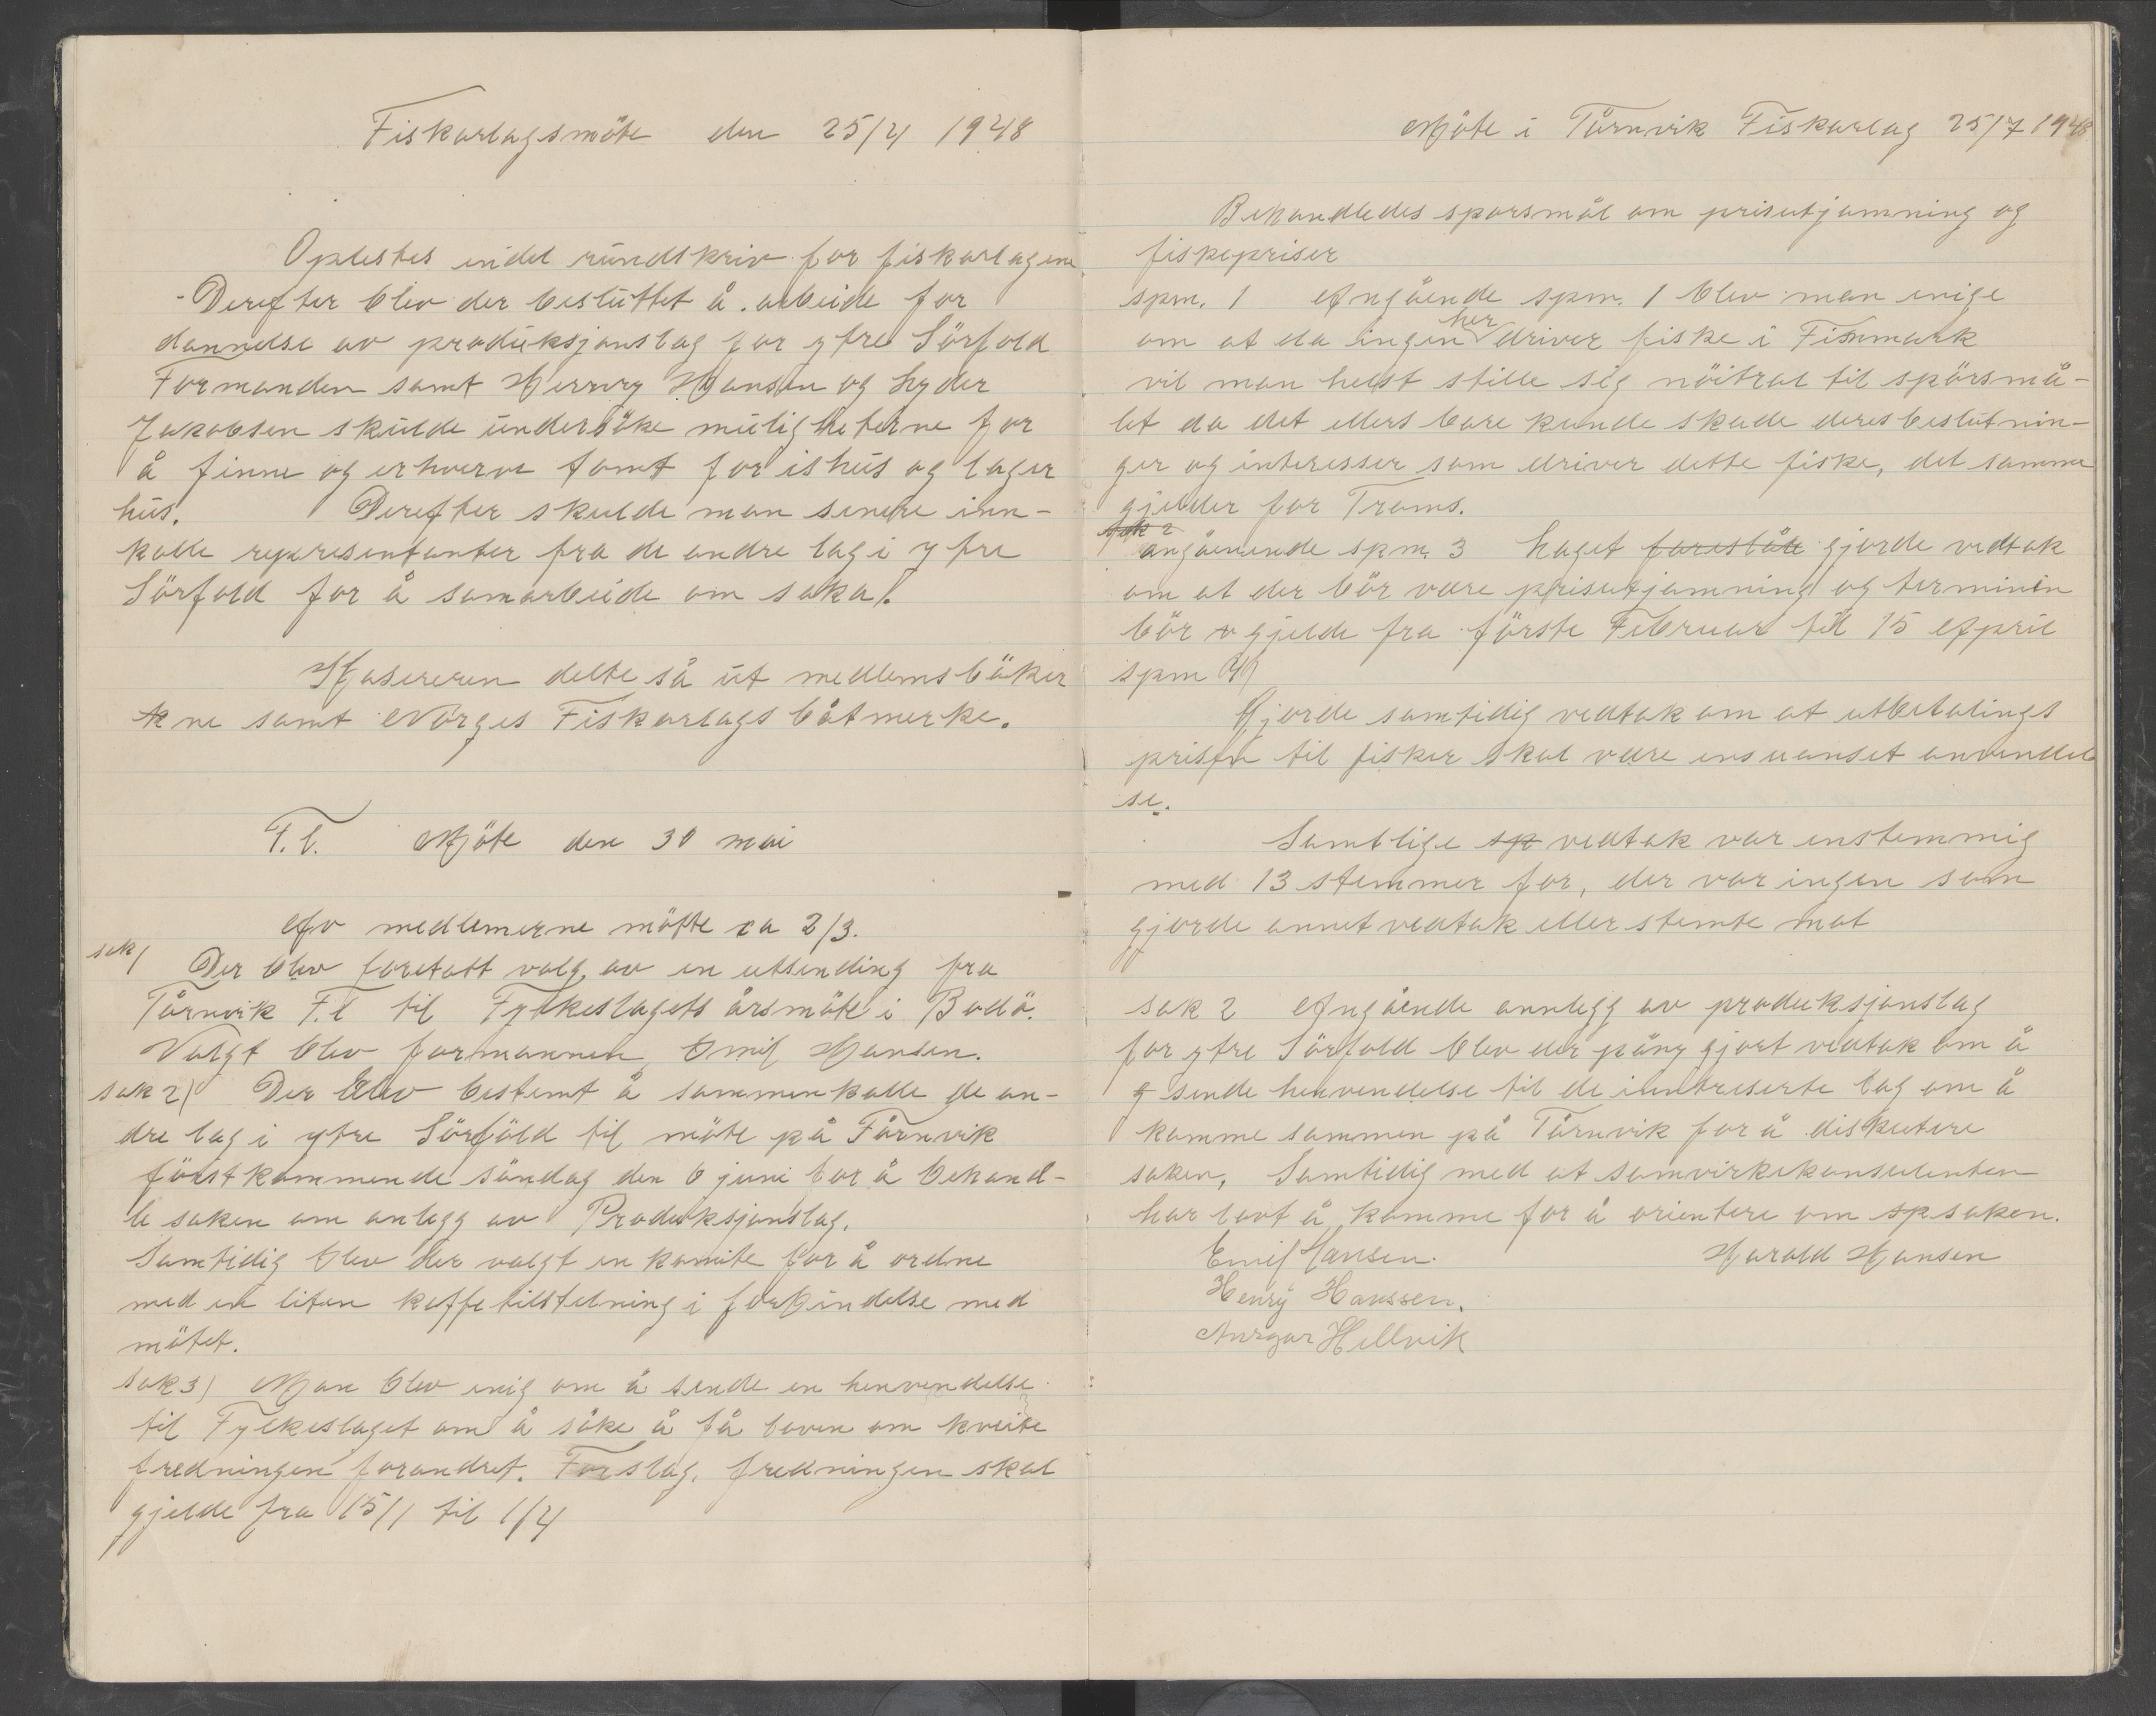 Fiskarlagsmöte den 25/4 1948
Oplestes endel rundskriv for fiskarlagene
- Derefter blev der besluttet å. arbeide for
dannelse av produksjonslag for ytre Sörfold
Formanden samt Henry Hansen og Lyder
Jakobsen skulde undersöke muligheterne for
å finne og erhverve tomt for ishus og lager
hus. Derefter skulde man senere inn-
kalle representanter fra de andre lag i ytre
Sörfold for å samarbeide om saka.
Kasereren delte så ut medlemsböker
ne samt Norges Fiskarlags båtmerke.
F.l. Möte den 30 mai
Av medlemerne mötte ca 2/3.
sak 1 Der blev foretatt valg av en utsending fra
Tårnvik F.l til Fylkeslagets årsmöte i Bodö.
Valgt blev formannen Emil Hansen.
sak 2) Der blev bestemt å sammenkalle de an-
dre lag i ytre Sörfold til möte på Tårnvik
förstkommende söndag den 6 juni for å behand-
le saken om anlegg av Produksjonslag.
Samtidig blev der valgt en komite for å ordne
med en liten kaffetilstelning i forbindelse med
mötet.
sak 3) Man blev enig om å sende en henvendelse
til Fylkeslaget om å söke å få loven om kveite
fredningen forandret. Forslag. fredningen skal
gjelde fra 15/1 til 1/4
Möte i Tårnvik Fiskarlag 25/7 1948
Behandledes sporsmål om prisutjamning og
fiskepriser
spm. 1 Angående spm. 1 blev man enige
om at da ingen her driver fiske i Finnmark
vil man helst stille sig nöitral til spörsmå-
let da det ellers bare kunde skade deres beslutnin-
ger og interesser som driver dette fiske, det samme
gjelder for Troms.
sak 2
angåenende spm. 3 Laget foreslåle gjorde vedtak
om at der bör være prisutjamning og terminen
bör gjelde fra förste Februar til 15 April
spm 4)
Gjorde samtidig vedtak om at utbetalings
prisen til fisker skal være ens uanset anvendel
se.
Samtlige sp vedtak var enstemmig
med 13 stemmer for, der var ingen som
gjorde annet vedtak eller stemte mot
sak 2 Angående annlegg av produksjonslag
for ytre Sörfold blev der påny gjort vedtak om å
g sende henvendelse til de inntreserte lag om å
komme sammen på Tårnvik for å diskutere
saken, Samtidig med at samvirkekonsulenten
har lovt å komme for å orientere om sp saken.
Emil Hansen. Harald Hansen
Henry Hanssen.
Ansgar Hellvik